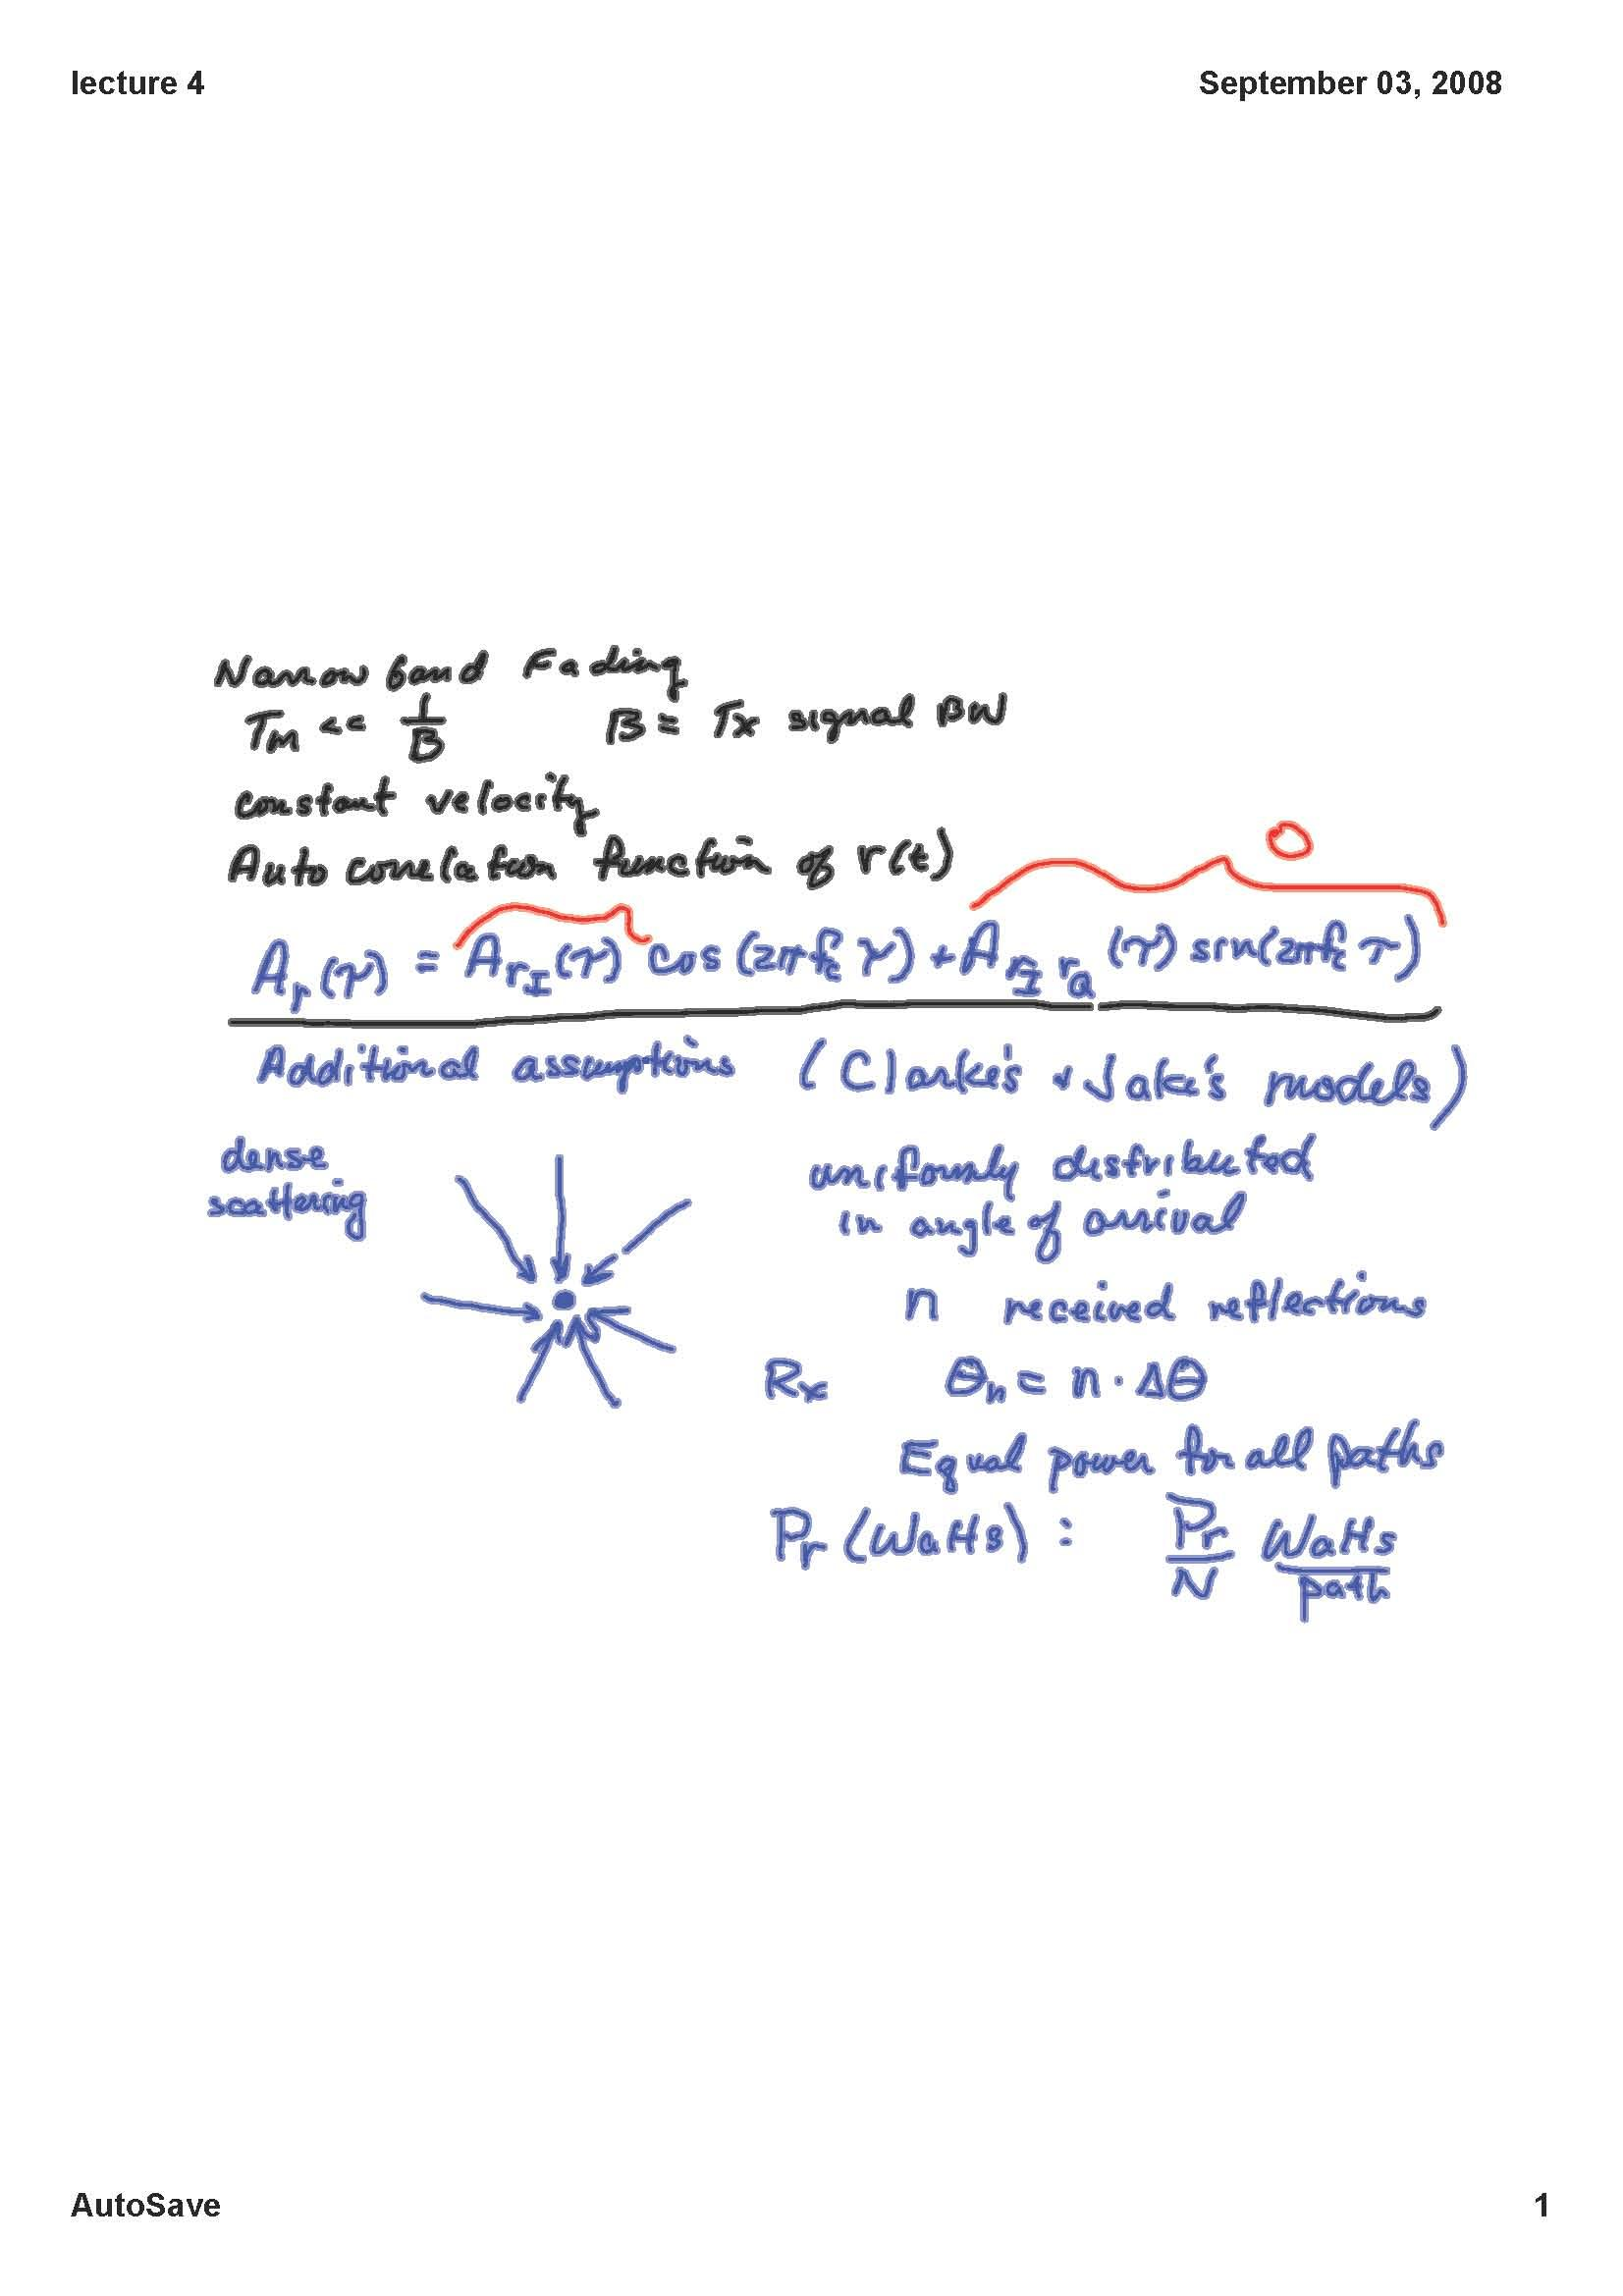 lecture 4
September 03, 2008
Narrow band Fading
Tm << 1/B    B = Tx signal BW
constant velocity
Auto correlation function of r(t)
0
A_r(τ) = A_{r_I}(τ) cos(2πf_c τ) + A_{r_I r_Q}(τ) sin(2πf_c τ)
Additional assumptions (Clarke's + Jake's models)
dense
scattering
uniformly distributed
in angle of arrival
n received reflections
Rx    θ_n = n · Δθ
Equal power for all paths
P_r (Watts) : P_r/N Watts/path
AutoSave
1